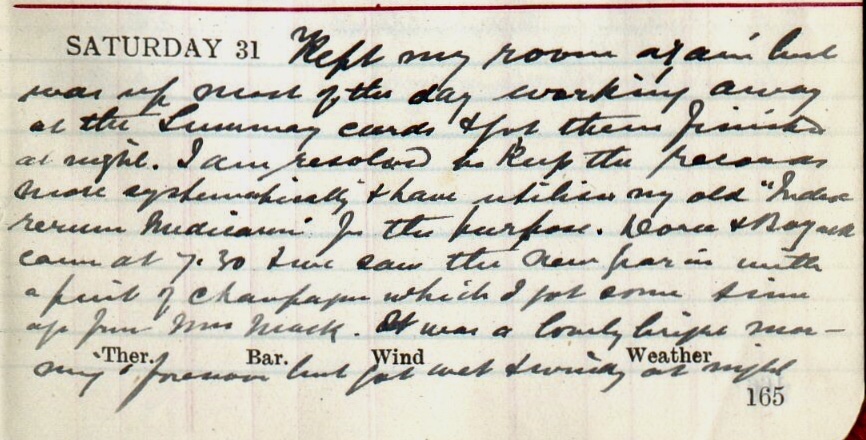 SATURDAY 31 Kept my room again but
was up most of the day working away
at the Summary cards & got them finished
at night. I am resolved to keep the records
more systematically & have utilised my old "Index
rerum Medicarum" for the purpose. Dora &
came at 7.30 & we saw the New Year in with
a pint of champagne which I got some time
ago from Mrs Mack. It was a lovely bright mor-
Ther. Bar. Wind Weather
ning & forenoon but got wet & windy at night
165